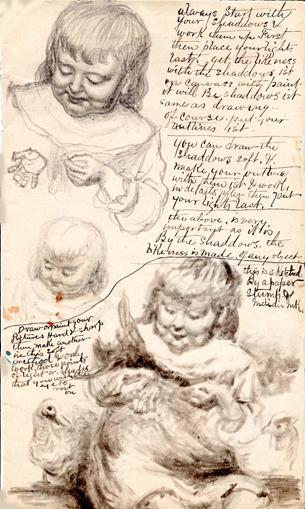 always Start with
your Shaddows &
work them up. First
then place your lights
last. get the likeness
with the shaddows, 1st
on canvass with paint
it will Be shaddows 1st
same as drawing..
of course. put your
outlines 1st
you can draw the
shaddows soft. &
make your outline
with them 1st & work
in details after then put
your lights last.
the above. is very
important as it is
By the shaddows. the
likeness is made of any object
this is sketched
By a paper
stump &
Draw or paint your
pictures Hard & sharp
then make another
in this soft
method & only
work those points
of light or
that
rest
on